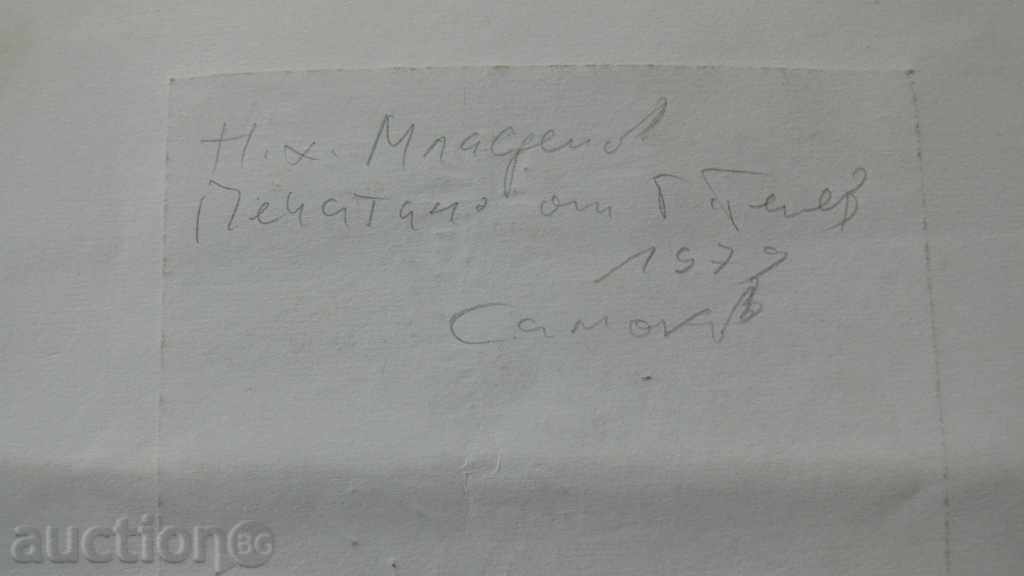 Н. х. Младенов
Печатано от Г Пенев
1979
Самоков
auction BG